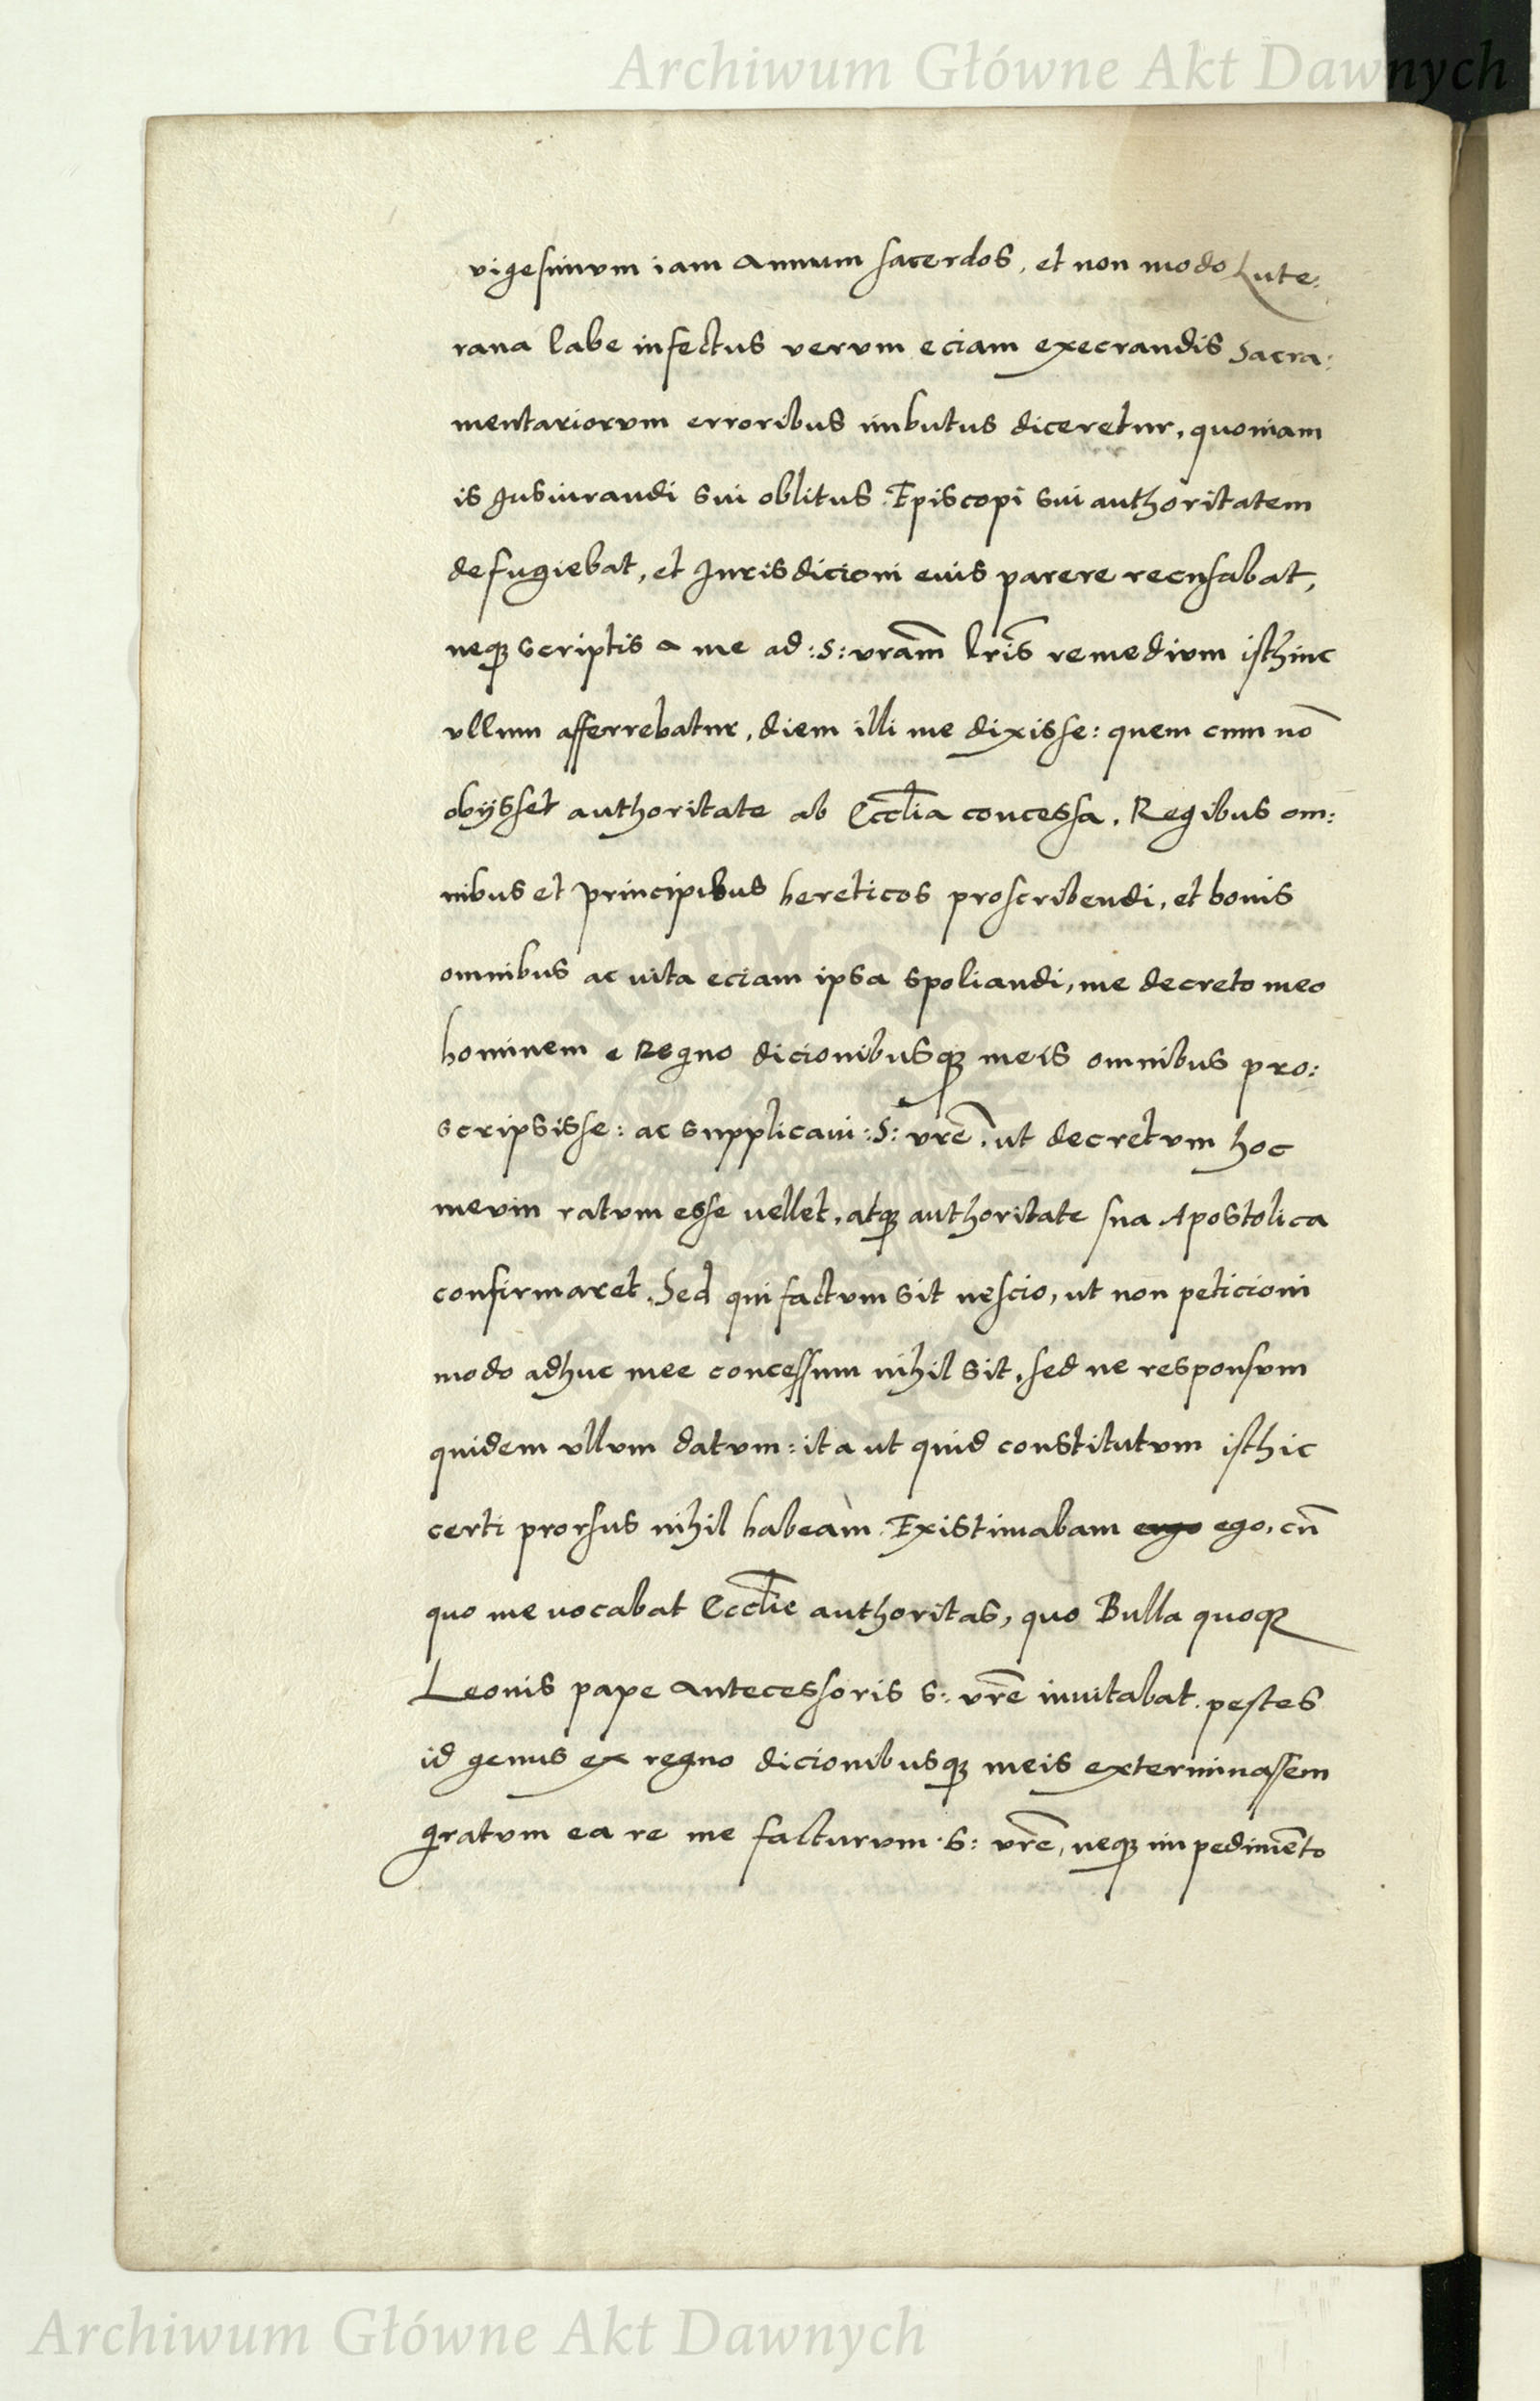 Archiwum Główne Akt Dawnych
vigesimum iam annum sacerdos, et non modo Lute:
rana labe infectus verum eciam execrandis Sacra:
mentariorum erroribus imbutus diceretur, quoniam
is Jusiurandi sui oblitus Episcopi sui authoritatem
defugiebat, et Jurisdicioni euis parere recusabat,
neqꝫ scriptis a me ad :S: vram̄ lr̄is remedium isthinc
vllum afferrebatur, diem illi me dixisse: quem cum nō
obijsset authoritate ab Eccl̄ia concessa, Regibus om:
nibus et principibus hereticos proscribendi, et bonis
omnibus ac vita eciam ipsa spoliandi, me decreto meo
hominem e Regno dicionibusqꝫ meis omnibus pro:
scripsisse: ac supplicaui :S: vrē. ut decretum hoc
meum ratum esse vellet, atqꝫ authoritate sua Apostolica
confirmaret. Sed qui factum sit nescio, ut non peticioni
modo adhuc mee concessum nihil sit, sed ne responsum
quidem vllum datum: ita ut quid constitutum isthic
certi prorsus nihil habeam. Existimabam ergo ego, cū
quo me uocabat Eccl̄ie authoritas, quo Bulla quoqꝫ
Leonis pape antecessoris S: vrē inuitabat. pestes
id genus ex regno dicionibusqꝫ meis exterminassem
gratum ea re me facturum S: vrē, neqꝫ impedimēto
Archiwum Główne Akt Dawnych